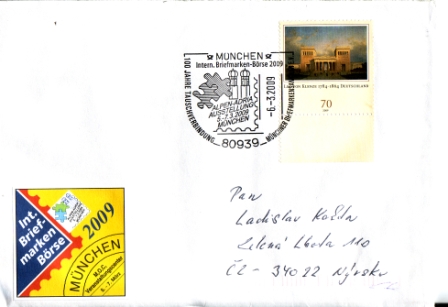 MÜNCHEN
Intern. Briefmarken-Börse 2009
100 JAHRE TAUSCHVERBINDUNG
ALPEN-ADRIA
AUSSTELLUNG
5.-7.3.2009
MÜNCHEN
-6.-3.2009
80939
MÜNCHNER
LEO VON KLENZE 1784–1864 DEUTSCHLAND
70
Int.
Brief-
marken
Börse
2009
MÜNCHEN
M.O.C.
Veranstaltungscenter
5.-7. März
Pan
Ladislav
Zelená Lhota 110
CZ - 34022 Nýrsko